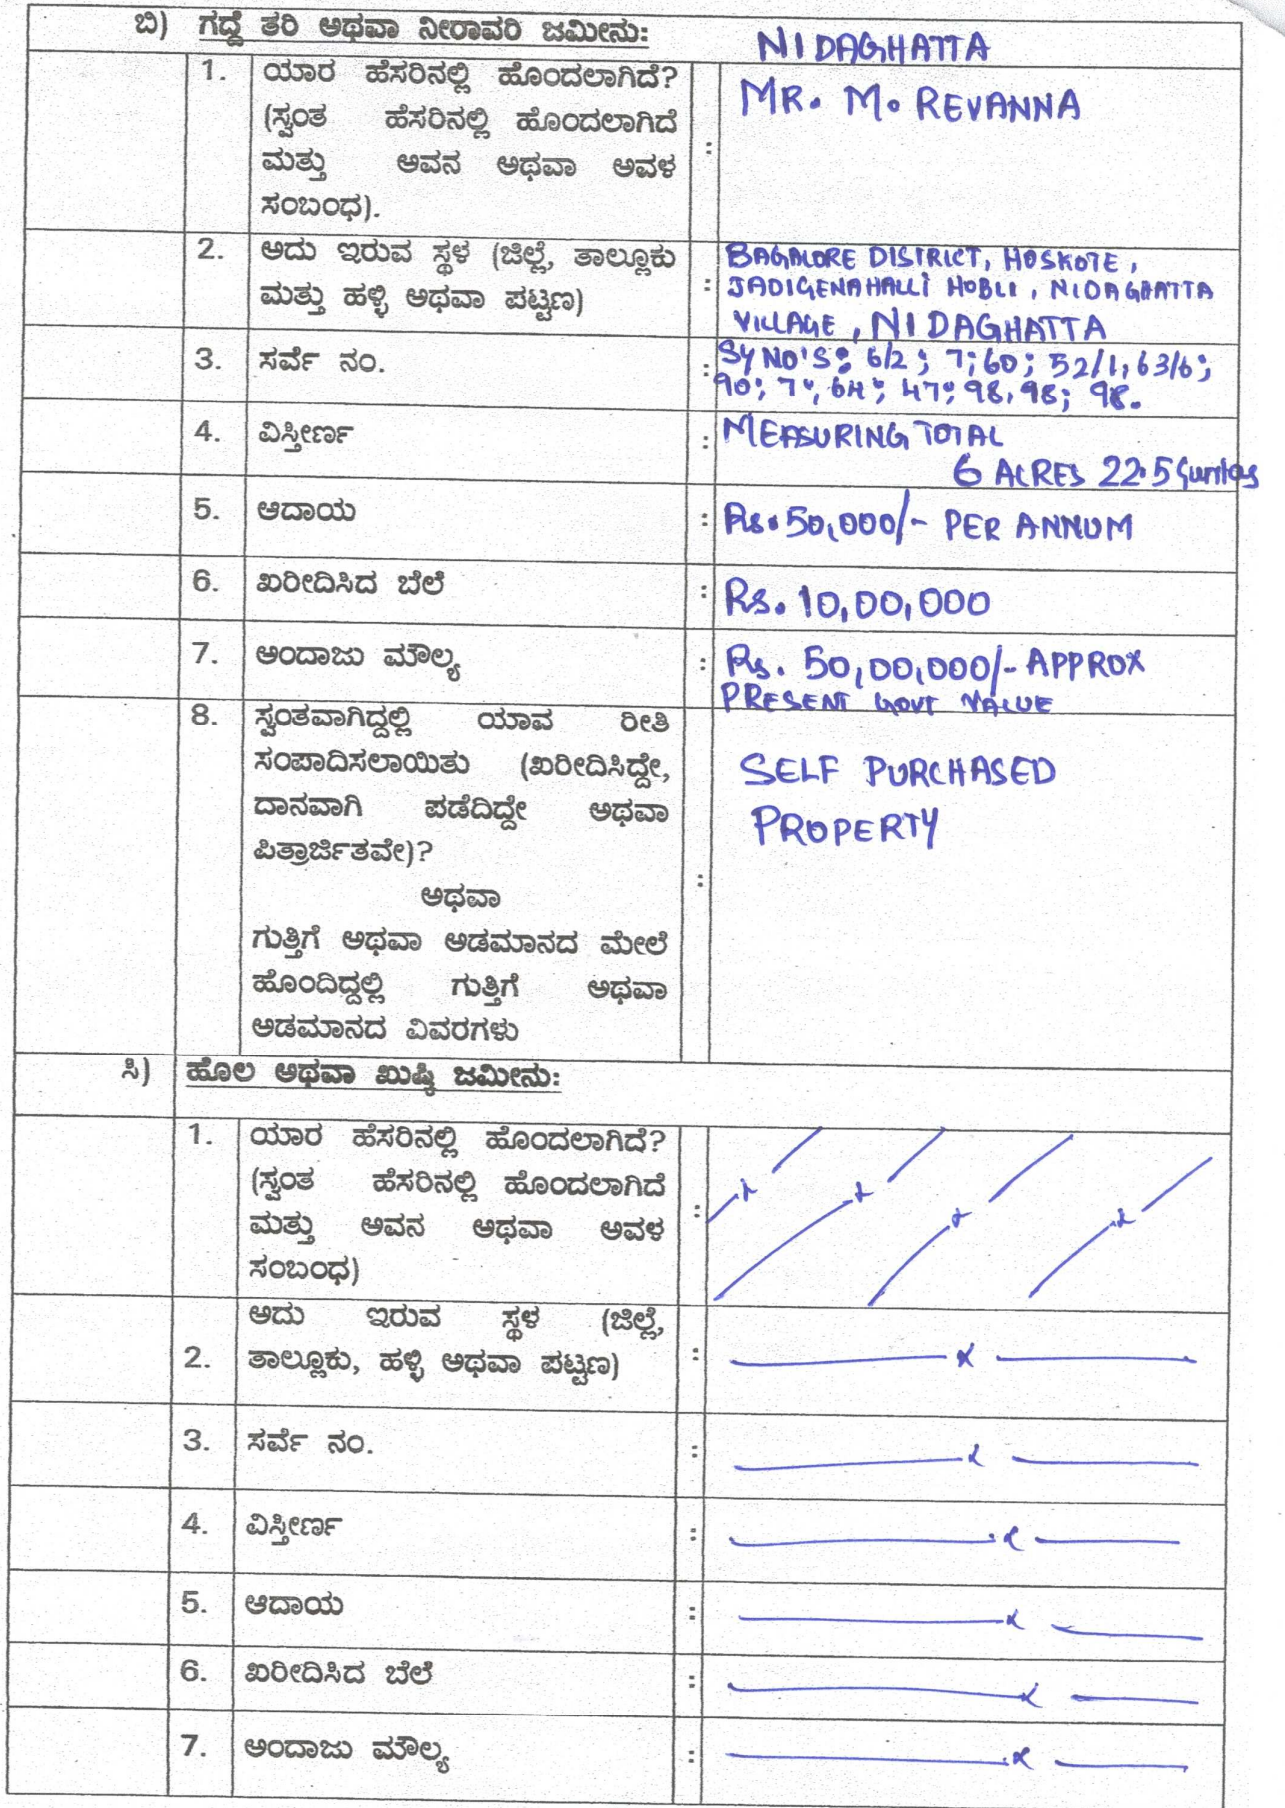 ಬಿ) ಗದ್ದೆ ತರಿ ಅಥವಾ ನೀರಾವರಿ ಜಮೀನು:
NIDAGHATTA
1. ಯಾರ ಹೆಸರಿನಲ್ಲಿ ಹೊಂದಲಾಗಿದೆ?
(ಸ್ವಂತ ಹೆಸರಿನಲ್ಲಿ ಹೊಂದಲಾಗಿದೆ
ಮತ್ತು ಅವನ ಅಥವಾ ಅವಳ
ಸಂಬಂಧ).
:
MR. M. REVANNA
2. ಅದು ಇರುವ ಸ್ಥಳ (ಜಿಲ್ಲೆ, ತಾಲ್ಲೂಕು
ಮತ್ತು ಹಳ್ಳಿ ಅಥವಾ ಪಟ್ಟಣ)
:
BAGALORE DISTRICT, HOSKOTE,
JADIGENAHALLI HOBLI, NIDAGHATTA
VILLAGE, NIDAGHATTA
3. ಸರ್ವೆ ನಂ.
:
SY NO'S: 6/2; 7; 60; 52/1, 63/6;
90; 7; 64; 47; 98, 98; 98.
4. ವಿಸ್ತೀರ್ಣ
:
MEASURING TOTAL
6 ACRES 22.5 Guntas
5. ಆದಾಯ : Rs. 50,000/- PER ANNUM
6. ಖರೀದಿಸಿದ ಬೆಲೆ : Rs. 10,00,000
7. ಅಂದಾಜು ಮೌಲ್ಯ : Rs. 50,00,000/- APPROX
PRESENT GOVT VALUE
8. ಸ್ವಂತವಾಗಿದ್ದಲ್ಲಿ ಯಾವ ರೀತಿ
ಸಂಪಾದಿಸಲಾಯಿತು (ಖರೀದಿಸಿದ್ದೇ,
ದಾನವಾಗಿ ಪಡೆದಿದ್ದೇ ಅಥವಾ
ಪಿತ್ರಾರ್ಜಿತವೇ)?
ಅಥವಾ
ಗುತ್ತಿಗೆ ಅಥವಾ ಅಡಮಾನದ ಮೇಲೆ
ಹೊಂದಿದ್ದಲ್ಲಿ ಗುತ್ತಿಗೆ ಅಥವಾ
ಅಡಮಾನದ ವಿವರಗಳು
:
SELF PURCHASED
PROPERTY
ಸಿ) ಹೊಲ ಅಥವಾ ಖುಷ್ಕಿ ಜಮೀನು:
1. ಯಾರ ಹೆಸರಿನಲ್ಲಿ ಹೊಂದಲಾಗಿದೆ?
(ಸ್ವಂತ ಹೆಸರಿನಲ್ಲಿ ಹೊಂದಲಾಗಿದೆ
ಮತ್ತು ಅವನ ಅಥವಾ ಅವಳ
ಸಂಬಂಧ)
:
ಅದು ಇರುವ ಸ್ಥಳ (ಜಿಲ್ಲೆ,
2. ತಾಲ್ಲೂಕು, ಹಳ್ಳಿ ಅಥವಾ ಪಟ್ಟಣ) :
3. ಸರ್ವೆ ನಂ. :
4. ವಿಸ್ತೀರ್ಣ :
5. ಆದಾಯ :
6. ಖರೀದಿಸಿದ ಬೆಲೆ :
7. ಅಂದಾಜು ಮೌಲ್ಯ :